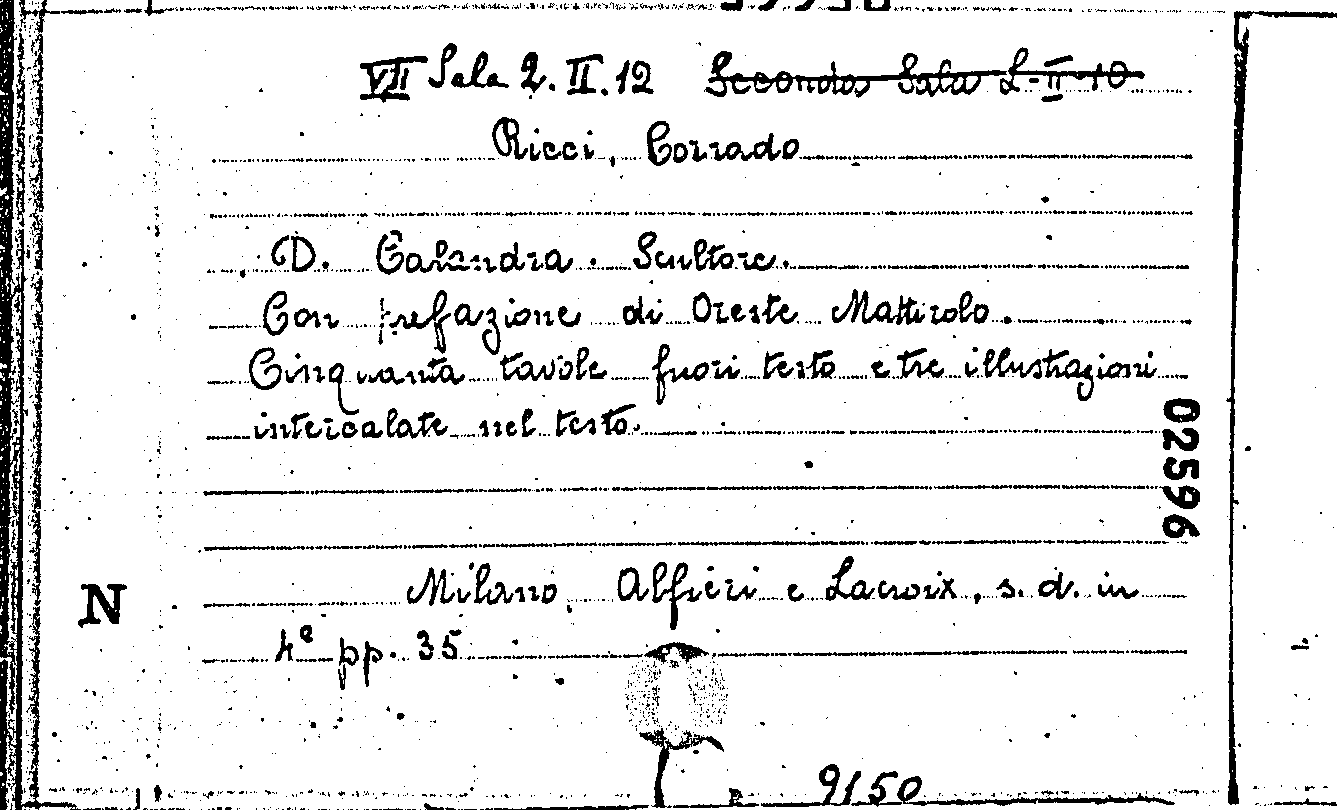 VII Sala 2. II. 12 Seconda Sala L-II-10
Ricci, Corrado
D. Calandra. Scultore.
Con prefazione di Oreste Mattirolo.
Cinquanta tavole fuori testo e tre illustrazioni
intercalate nel testo.
02596
Milano, Alfieri e Lacroix, s. d. in
N
4º pp. 35
9150